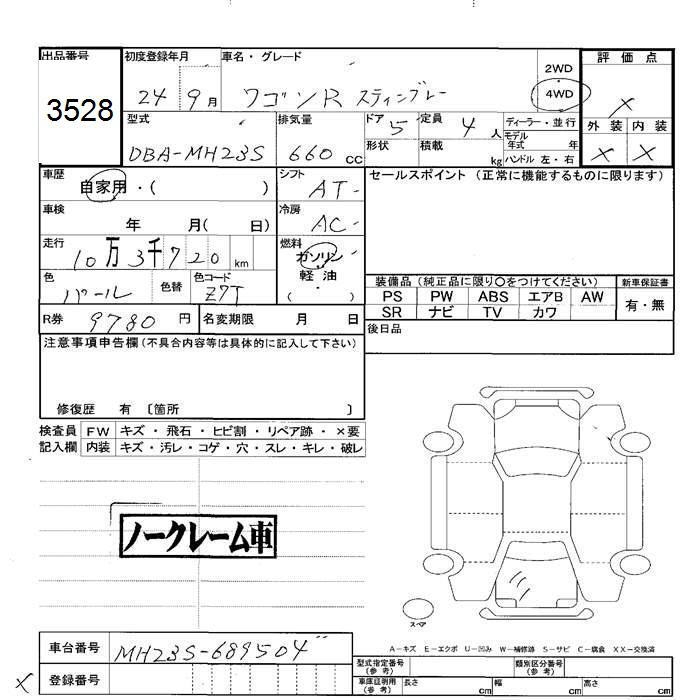 出品番号 初度登録年月 車名・グレード 評価点
3528 24 9月 ワゴンR スティングレー 2WD 4WD X
型式 排気量 ドア 5 定員 4人 ディーラー・並行 外装 内装
DBA-MH23S 660 cc 形状 積載 kg モデル年式 年 ハンドル 左・右 X X
車歴 自家用・( ) シフト AT セールスポイント (正常に機能するものに限ります)
車検 年 月( 日) 冷房 AC
走行 10万3千720 km 燃料 ガソリン・軽油・( )
色 パール 色替 色コード Z7T
装備品 (純正品に限り○をつけてください) 新車保証書
PS PW ABS エアB AW 有・無
SR ナビ TV カワ
R券 9780円 名変期限 月 日 後日品
注意事項申告欄(不具合内容等は具体的に記入して下さい)
修復歴 有 〔箇所 〕
検査員 FW キズ・飛石・ヒビ割・リペア跡・×要
記入欄 内装 キズ・汚レ・コゲ・穴・スレ・キレ・破レ
ノークレーム車
スペア
A-キズ E-エクボ U-凹み W-補修跡 S-サビ C-腐食 XX-交換済
車台番号 MH23S-689504
型式指定番号(参考) 類別区分番号(参考)
X 登録番号
車庫証明用(参考) 長さ cm 幅 cm 高さ cm